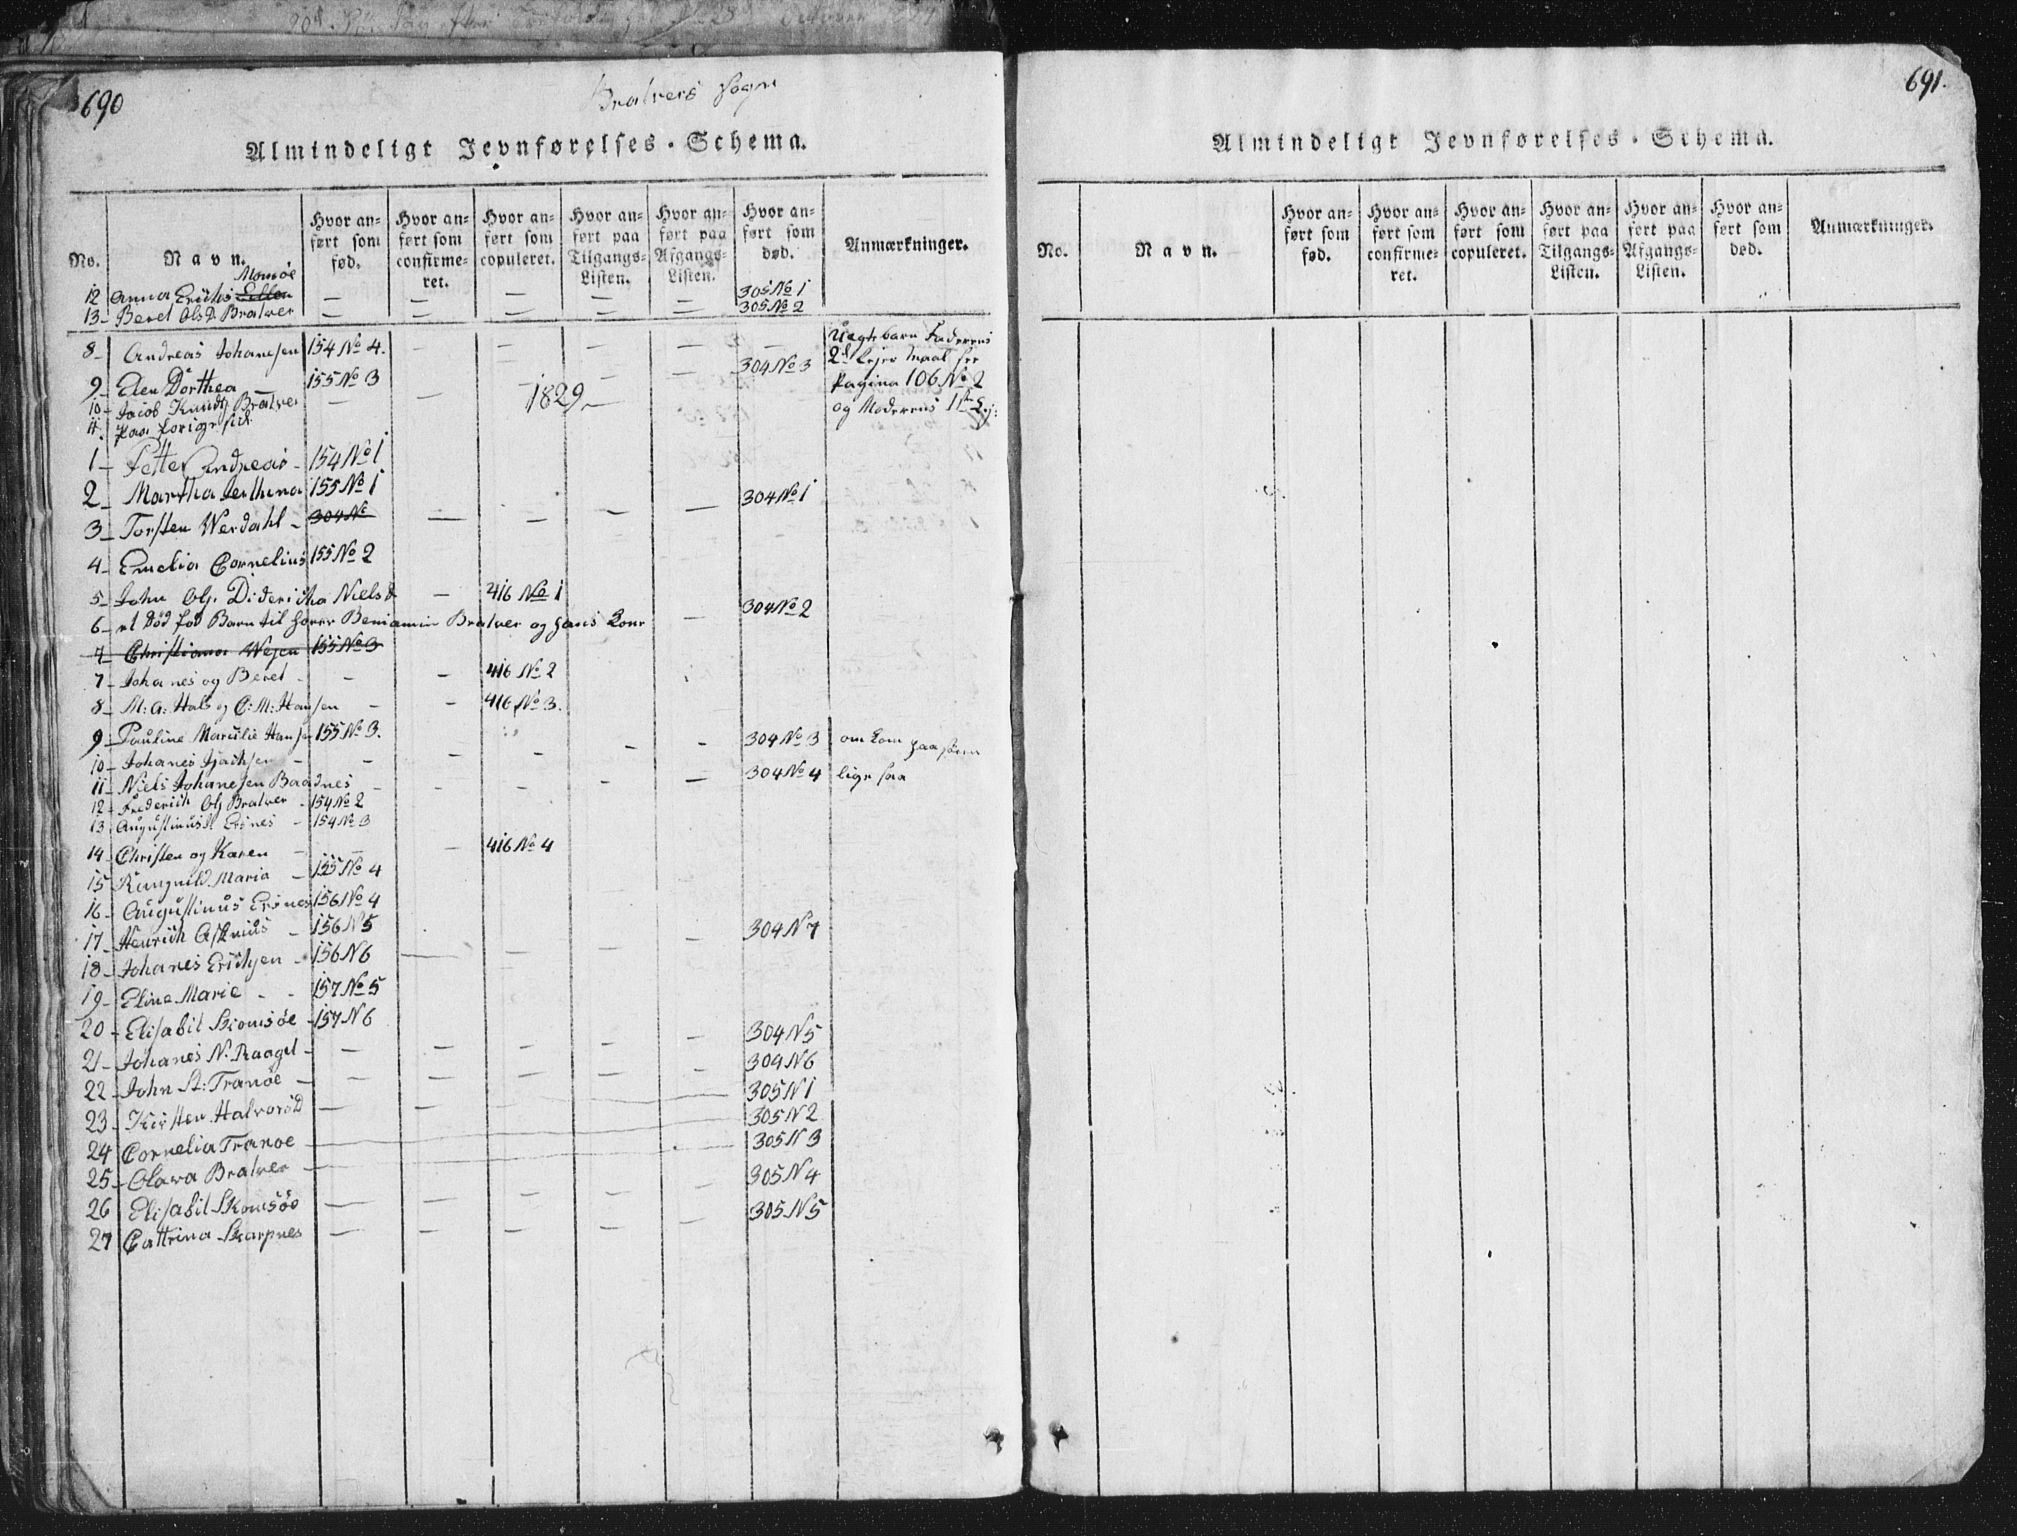 690
Bratvers Sogn
Almindeligt Jevnførelses-Schema.
No.
Navn.
Hvor anført som fød.
Hvor anført som confirmeret.
Hvor anført som copuleret.
Hvor anført paa Tilgangs-Listen.
Hvor anført paa Afgangs-Listen.
Hvor anført som død.
Anmærkninger.
12 Anna Erichs — — — — — 305 No 1
13- Beret Ols D. Bratver — — — — — 305 No 2
8- Andreas Johanesen 154 No 4. — — — — — Uægte barn Faderens
9- Elen Dorthea — 155 No 3 — — 304 No 3 2d Lejer Maal see
Pagina 106 No 2
10- Jacob Knuds Bratver — — 1829 — og Moderens 1ste Lej:
11. paa forige sid.
1- Petter Andreas - 154 No 1
2- Martha 155 No 1
3- Torsten Werdahl - 304 No — — — — 304 No 1
4- Emelia Cornelius 155 No 2
5- John Ols. Didericha Niels D — 416 No 1
6- et død fød Barn til Benjamin Bratver og hans Kone — 304 No 2
7- Christiana 155 No 3
7- Johanes og Beret - - - 416 No 2
8- M: A: Hals og C: M: Hansen - - 416 No 3.
9- Pauline Hansen 155 No 3.
10- Johanes - - - - - - 304 No 3 om kom paa
11- Niels Johanesen Baadnes - - - - - 304 No 4 lige saa
12- Frederich Ols Bratver - 154 No 2
13- - 154 No 3
14- Christen og Karen — — — 416 No 4
15 Rangnild Maria — 155 No 4
16- Augustinus 156 No 4
17- Henrich — 156 N 5
18- Johanes Erichsen - 156 N 6 — — — — 304 N 7
19- Eline Marie - - 157 No 5
20- Elisabit - 157 N 6
21- Johanes N. — — — — — 304 N 5
22- John St: Tranøe — — — — — — 304 N 6
23- Kirsten — — — 305 N 1
24 Cornelia Tranoe — 305 N 2
25- Olava Bratver — 305 N 3
26 Elisabit Skomsøe — — — — — 305 N 4
27 Cattrina Skarpnes — — — — — 305 N 5
691.
Almindeligt Jevnførelses-Schema.
No.
Navn.
Hvor anført som fød.
Hvor anført som confirmeret.
Hvor anført som copuleret.
Hvor anført paa Tilgangs-Listen.
Hvor anført paa Afgangs-Listen.
Hvor anført som død.
Anmærkninger.